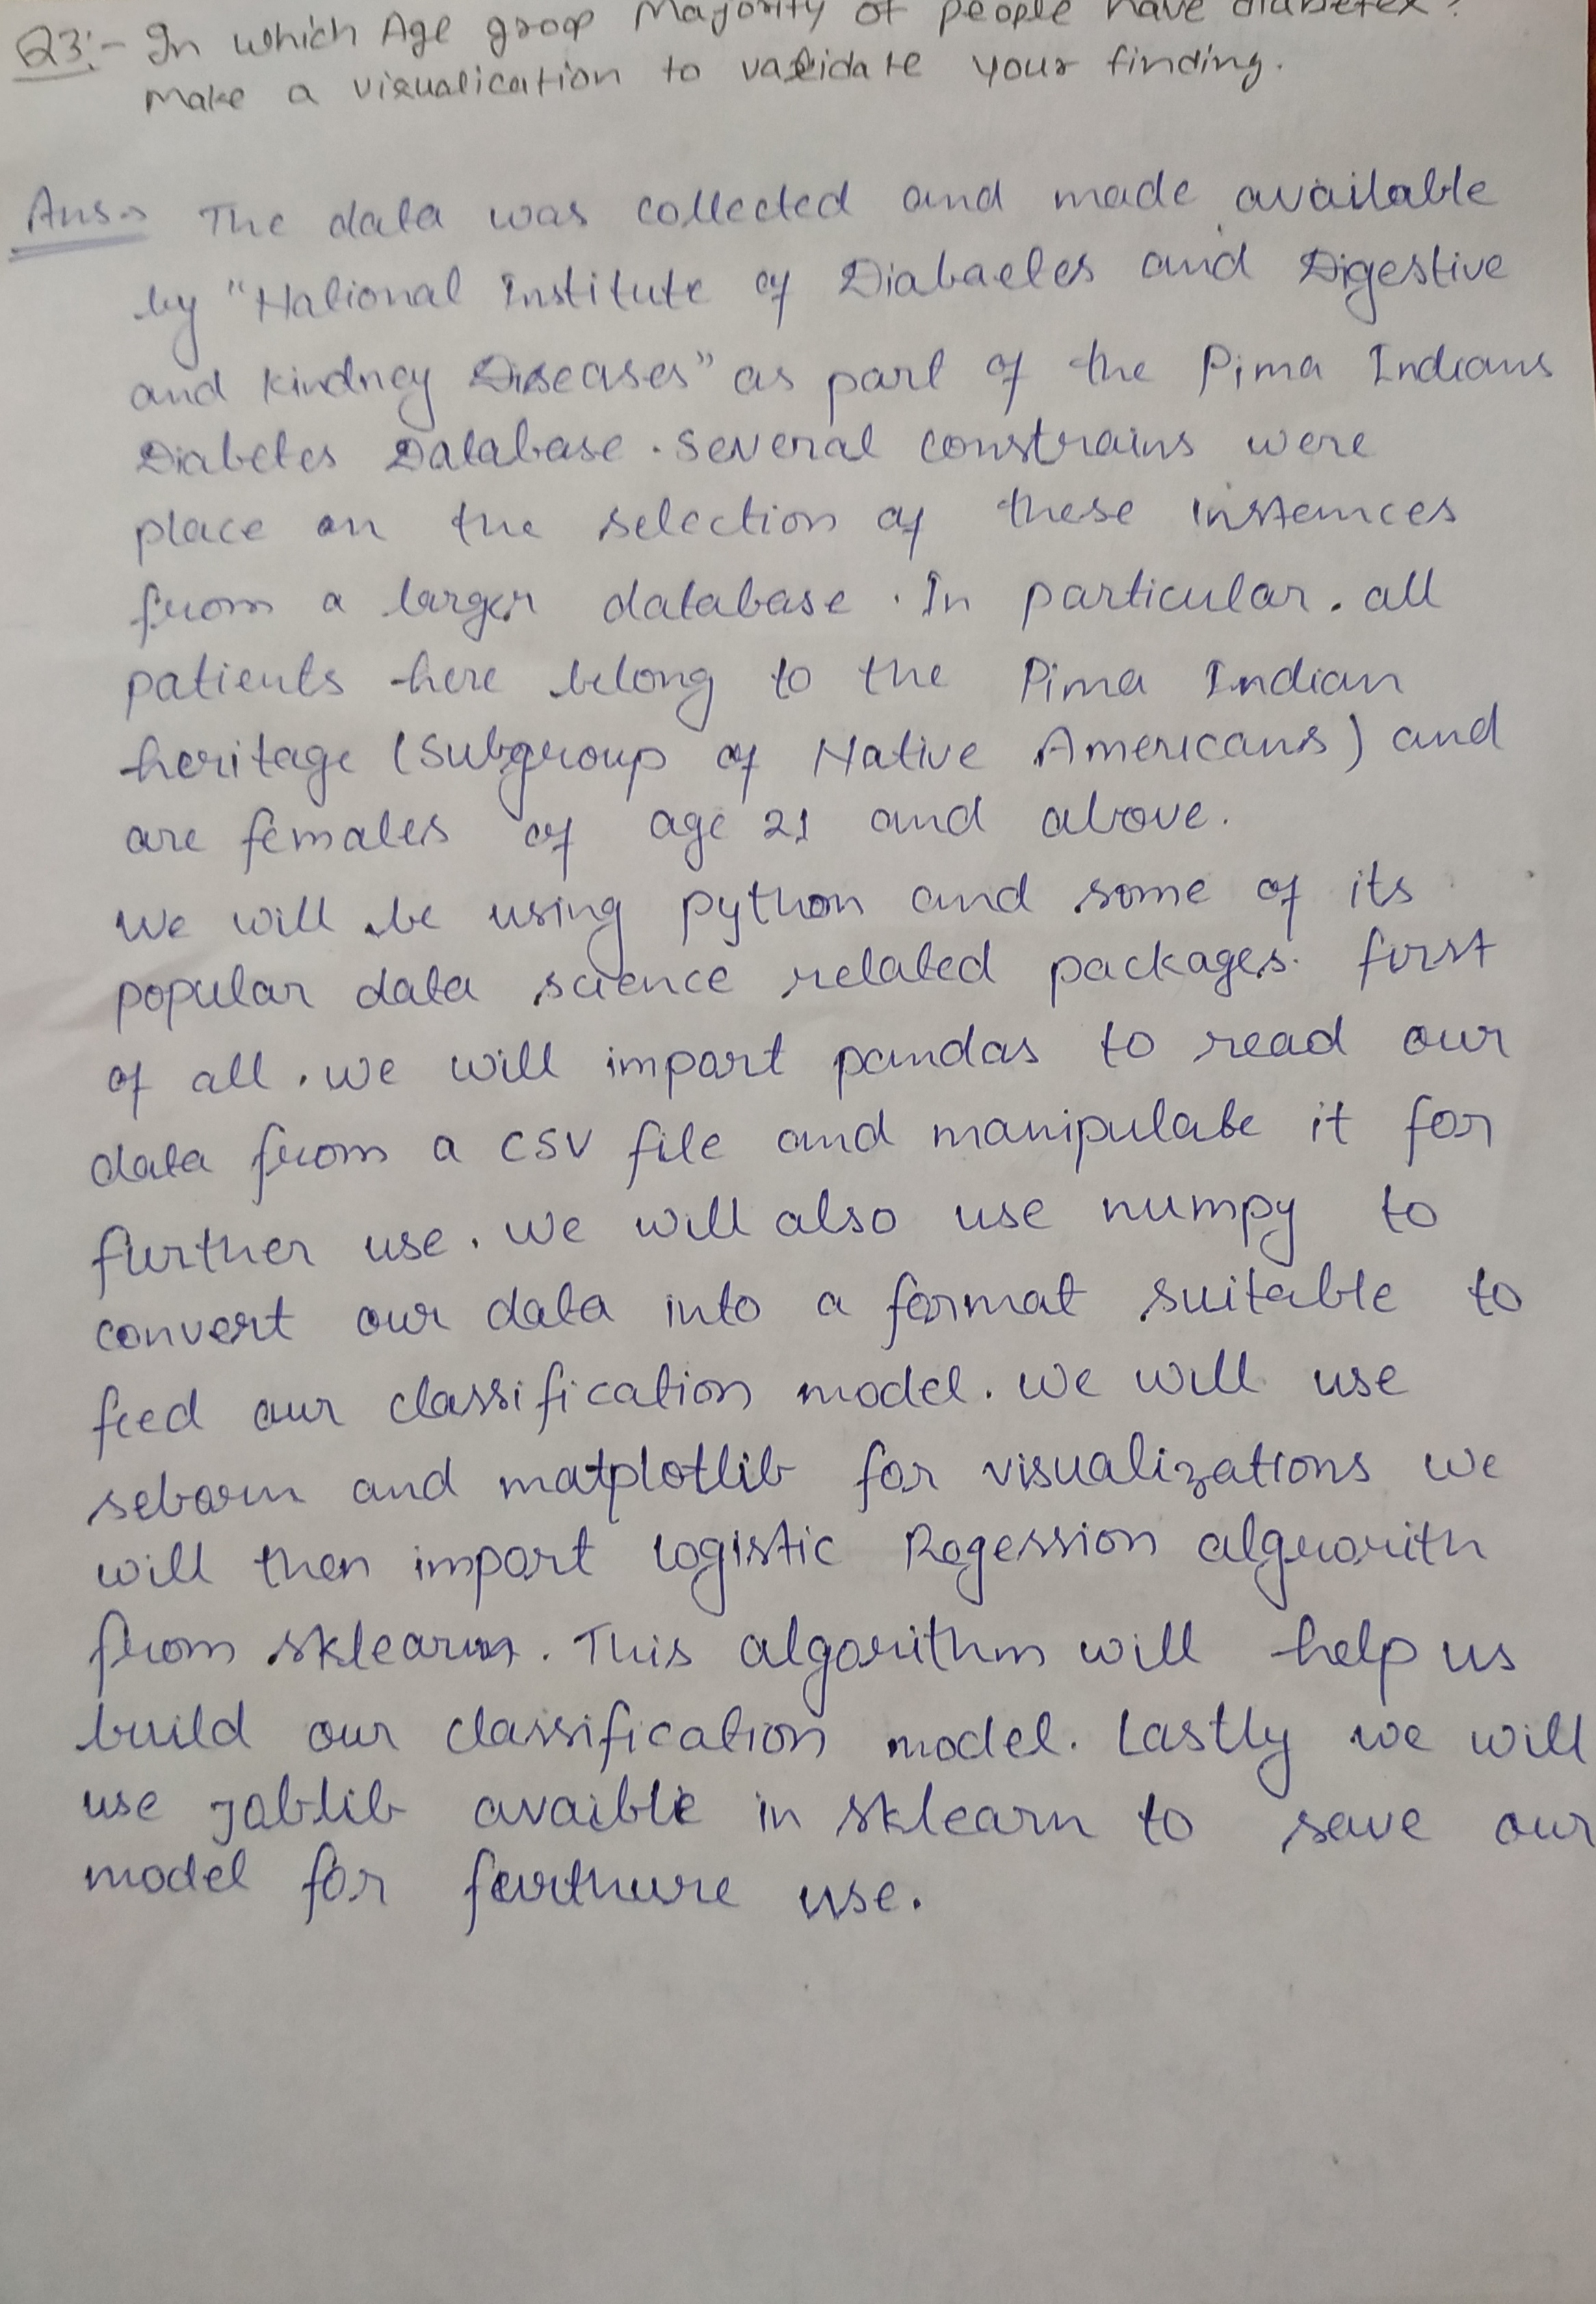 Q3:- In which Age groop Majority of people have diabetex?
Make a visualication to validate your finding.
Ans→ The data was collected and made available
by "National Institute of Diabaetes and Digestive
and Kindney Diseases" as part of the Pima Indians
Diabetes Database. Several constrains were
place on the selection of these instences
from a larger database. In particular. all
patients here belong to the Pima Indian
heritage (subgroup of Native Americans) and
are females of age 21 and above.
We will be using python and some of its
popular data science related packages. first
of all. we will import pandas to read our
data from a CSV file and manipulate it for
further use. We will also use numpy to
convert our data into a format suitable to
feed our classification model. We will use
seborn and matplotlib for visualizations we
will then import logistic Regession alguorith
from sklearn. This algorithm will help us
build our classification model. Lastly we will
use joblib avaible in sklearn to save our
model for furthure use.